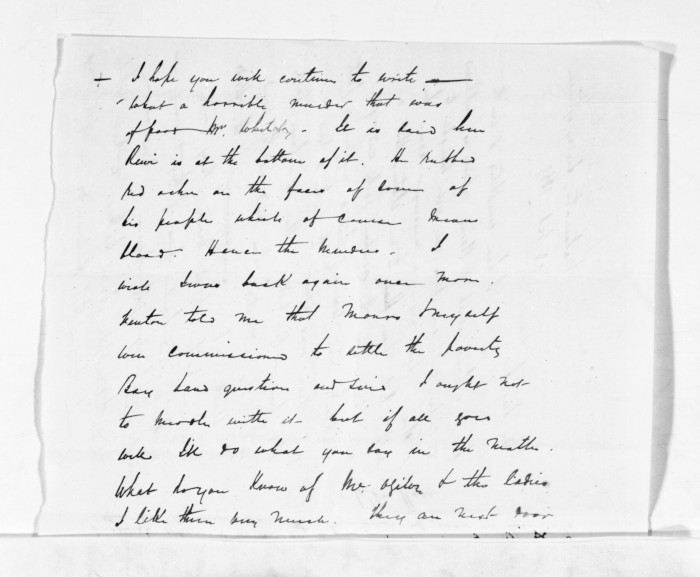 + I hope you will continue to write —
What a horrible murder that was
of poor Mr. Whiteley - It is said here
Rewi is at the bottom of it. He rubbed
red ochre on the faces of some of
his people which of course means
blood. Hence the Murders. I
wish I was back again once more.
Fenton told me that Monro & myself
were commissioned to settle the poverty
Bay Land question and said I ought not
to meddle with it - but if all goes
well I'll do what you say in the matter.
What do you know of Mr. Ogilvy & the ladies
I like them very much. They are next door